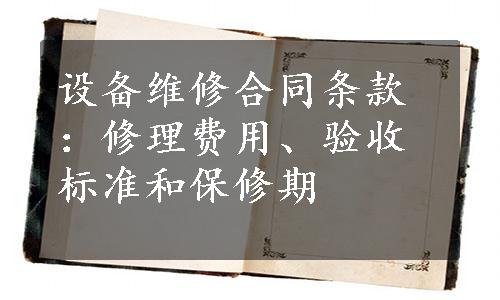 设备维修合同条款
：修理费用、验收
标准和保修期